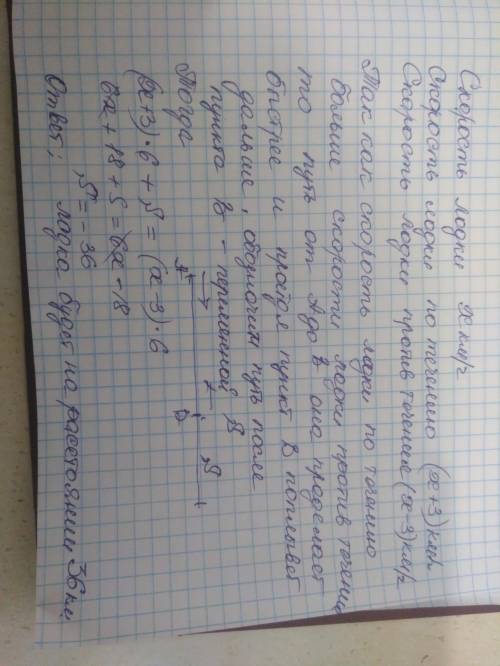 Скорость лодки x км/ч
Скорость лодки по течению (x+3) км/ч
Скорость лодки против течения (x-3) км/ч
Так как скорость лодки по течению
больше скорости лодки против течения,
то путь от А до В она проделает
быстрее и пройдя пункт В поплывет
дальше, обозначим путь после
пункта В - переменной S
Тогда
A B S
(x+3)·6 + S = (x-3)·6
6x + 18 + S = 6x - 18
S = -36
Ответ: лодка будет на расстоянии 36 км